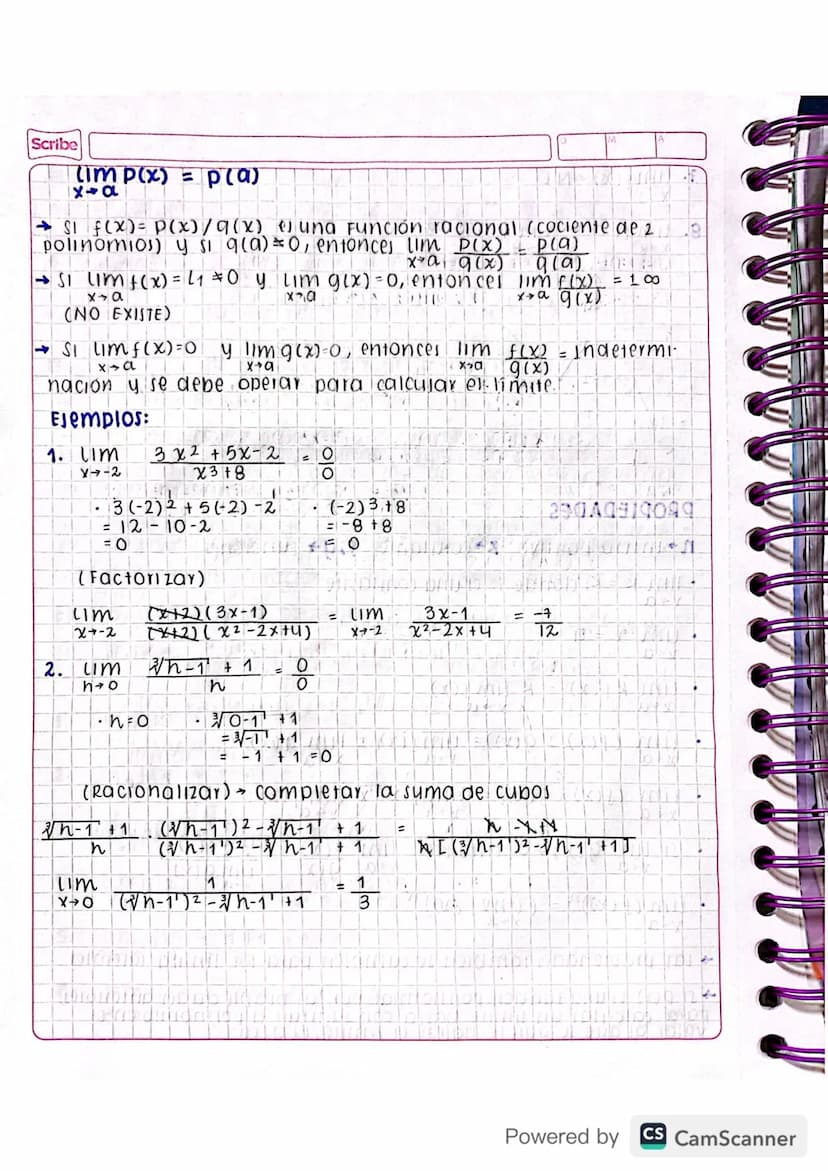 Scribe
D M A
lim p(x) = p(a)
x→a
→ Si f(x)= p(x)/q(x) es una función racional (cociente de 2
polinomios) y si q(a)≠0, entonces lim p(x)/q(x) = p(a)/q(a)
x→a
→ Si lim f(x) = L1 ≠0 y lim g(x)=0, entonces lim f(x)/g(x) = ± ∞
x→a x→a x→a
(NO EXISTE)
→ Si lim f(x)=0 y lim g(x)=0, entonces lim f(x)/g(x) = indetermi-
x→a x→a x→a
nación y se debe operar para calcular el límite.
Ejemplos:
1. lim (3x² + 5x - 2)/(x³+8) = 0/0
x→-2
· 3(-2)² + 5(-2) - 2 · (-2)³+8
= 12 - 10 - 2 = -8 + 8
= 0 = 0
(Factorizar)
lim (x+2)(3x-1)/(x+2)(x²-2x+4) = lim (3x-1)/(x²-2x+4) = -7/12
x→-2 x→-2
2. lim (∛h-1 + 1)/h = 0/0
h→0
· h=0 · ∛0-1 + 1
= ∛-1 + 1
= -1 + 1 = 0
(Racionalizar) → completar la suma de cubos
(∛h-1 + 1)/h · ((∛h-1)² - ∛h-1 + 1)/((∛h-1)² - ∛h-1 + 1) = (h -1+1)/(h[(∛h-1)² - ∛h-1 +1])
lim 1/((∛h-1)² - ∛h-1 +1) = 1/3
x→0
Powered by CS CamScanner